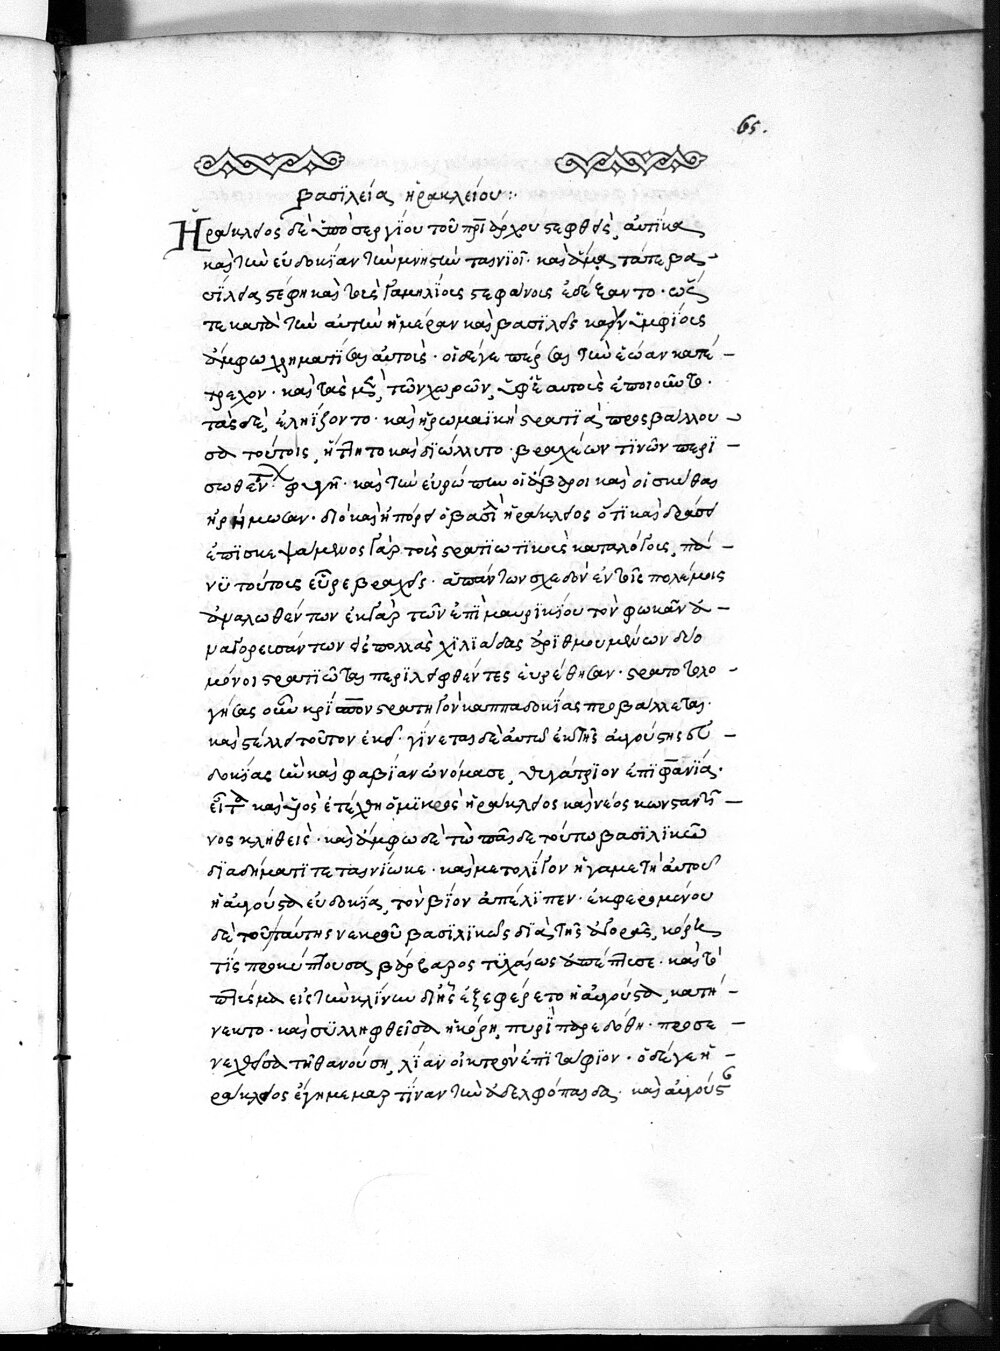 65.
βασιλεία ἡρακλείου:·
Ἡράκλειος δὲ ὑπὸ σεργίου τοῦ πριάρχου στεφθεὶς, αὐτίκα
καὶ τὴν εὐδοκίαν τὴν μνηστὴν ταινιοῖ· καὶ ἅμα τά τε βα-
σίλεια στέφη καὶ τοῖς γαμηλίοις στεφάνοις ἐδέξαντο· ὥς
τε κατὰ τὴν αὐτὴν ἡμέραν καὶ βασιλεῖς καὶ νυμφίοις
ἄμφω χρηματίσαι αὐτοῖς· οἱ δέ γε πέρσαι τὴν ἑῴαν κατέ-
τρεχον· καὶ τὰς μὲν τῶν χωρῶν, ὑφ' ἑαυτοῖς ἐποιοῦντο·
τὰς δὲ, ἐληΐζοντο· καὶ ἡ ῥωμαϊκὴ στρατιὰ προσβάλλου-
σα τούτοις, ἥττητο καὶ διώλλυτο· βραχέων τινῶν περι-
σωθέντων φυγῇ· καὶ τὴν εὐρώπην οἱ ἄβαροι καὶ οἱ σκύθαι
ἠρήμωσαν· διὸ καὶ ἠπόρει ὁ βασιλεὺς ἡράκλειος ὅτι καὶ δράσει
ἐπισκεψάμενος γὰρ τοῖς στρατιωτικοῖς καταλόγοις, πά-
νυ τούτοις εὗρε βραχεῖς· ἁπάντων σχεδὸν ἐν τοῖς πολέμοις
ἀναλωθέντων ἐκ γὰρ τῶν ἐπὶ μαυρικίου τὸν φωκᾶν ἀ-
ναγορευσάντων εἰς πολλὰς χιλιάδας ἀριθμουμένων δύο
μόνοι στρατιῶται περιλειφθέντες εὑρέθησαν· στρατολο-
γήσας οὖν κρίσπον στρατηγὸν καππαδοκίας προβάλλεται·
καὶ στέλλει τοῦτον ἐκεῖ· γίνεται δὲ αὐτῷ ἐκ τῆς αὐγούστης εὐ-
δοκίας ἣν καὶ φαβίαν ὠνόμασε, θυγάτριον ἐπιφανία·
εἶτα καὶ υἱὸς ἐτέχθη ὁ μικρὸς ἡράκλειος καὶ νέος κωνσταντῖ-
νος κληθεὶς· καὶ ἄμφω δὲ τὼ παῖδε τούτω βασιλικῷ
διαδήματι τεταινίωκε· καὶ μετ' ὀλίγον ἡ γαμετὴ αὐτοῦ
ἡ αὐγούστα εὐδοκία, τὸν βίον ἀπέλιπεν· ἐκφερομένου
δὲ τοῦ ταύτης νεκροῦ βασιλικῶς διὰ τῆς ἀγορᾶς, κόρη
τὶς προκύπτουσα βάρβαρος τυχαίως ἀπέπτυσε· καὶ τὸ
πτύσμα εἰς τὴν κλίνην δι' ἧς ἐξεφέρετο ἡ αὐγούστα, κατή-
νεκτο· καὶ συλληφθεῖσα ἡ κόρη, πυρὶ παρεδόθη· προσε
νεχθεῖσα τῇ θανούσῃ, λίαν οἰκτρὸν ἐπιτάφιον· ὁ δέ γε ἡ-
ράκλειος ἔγημε μαρτίναν τὴν ἀδελφόπαιδα· καὶ αὐγούσ